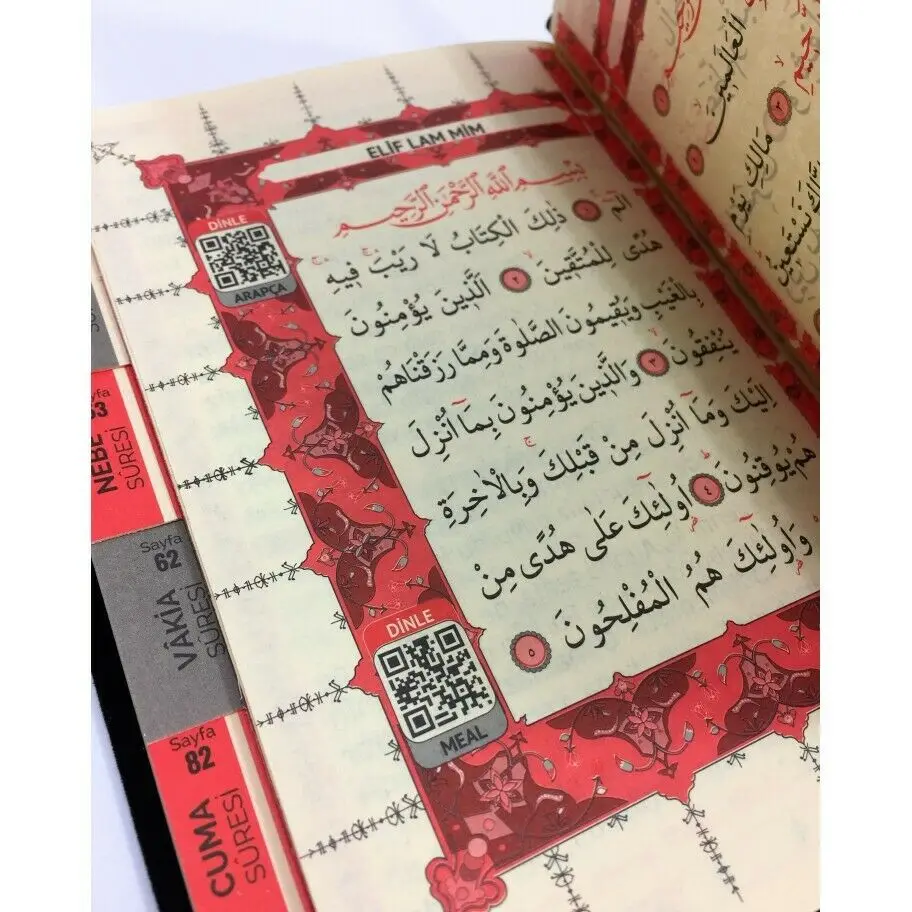 ELİF LAM MİM
بِسْمِ اللّٰهِ الرَّحْمٰنِ الرَّحِيمِ
الٓمٓ ١ ذٰلِكَ الْكِتَابُ لَا رَيْبَ فِيهِ
هُدًى لِلْمُتَّقِينَ ٢ اَلَّذِينَ يُؤْمِنُونَ
بِالْغَيْبِ وَيُقِيمُونَ الصَّلٰوةَ وَمِمَّا رَزَقْنَاهُمْ
يُنْفِقُونَ ٣ وَالَّذِينَ يُؤْمِنُونَ بِمَٓا اُنْزِلَ
اِلَيْكَ وَمَٓا اُنْزِلَ مِنْ قَبْلِكَ وَبِالْاٰخِرَةِ
هُمْ يُوقِنُونَ ٤ اُو۬لٰٓئِكَ عَلٰى هُدًى مِنْ
وَاُو۬لٰٓئِكَ هُمُ الْمُفْلِحُونَ ٥
DİNLE
ARAPÇA
DİNLE
MEAL
NEBE
SÛRESİ
Sayfa
62
VÂKIA
SÛRESİ
Sayfa
82
CUMA
SÛRESİ
الْعَالَمِينَ
مَالِكِ يَوْمِ
نَسْتَعِينُ